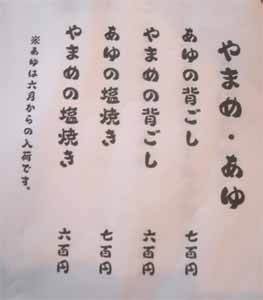 やまめ・あゆ
あゆの背ごし 七百円
やまめの背ごし 六百円
あゆの塩焼き 七百円
やまめの塩焼き 六百円
※あゆは六月からの入荷です。